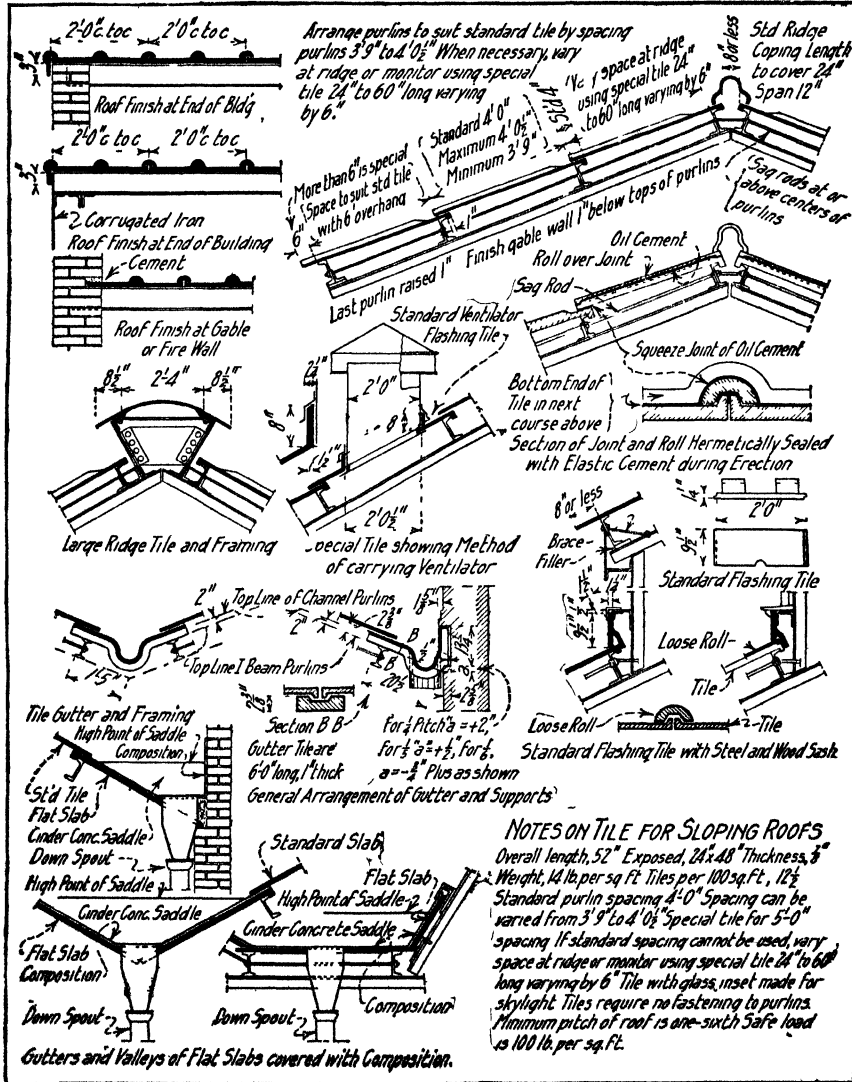 2'-0" c. to c   2'0" c to c
3"
Roof Finish at End of Bldg
2'-0" c to c   2'0" c to c
3"
Corrugated Iron
Roof Finish at End of Building
Cement
Roof Finish at Gable
or Fire Wall
Arrange purlins to suit standard tile by spacing
purlins 3'9" to 4'0½" When necessary, vary
at ridge or monitor using special
tile 24" to 60" long varying
by 6."
space at ridge
using special tile 24"
to 60" long varying by 6"
8" or less
Std Ridge
Coping Length
to cover 24"
Span 12"
Standard 4'0"
Maximum 4'0½"
Minimum 3'9"
More than 6" is special
Space to suit std tile
with 6 overhang
6"
1"
Last purlin raised 1"
Finish gable wall 1" below tops of purlins
Sag rods at or
above centers of
purlins
Oil Cement
Roll over Joint
Sag Rod
Standard Ventilator
Flashing Tile
Squeeze Joint of Oil Cement
Bottom End of
Tile in next
course above
Section of Joint and Roll Hermetically Sealed
with Elastic Cement during Erection
8½"   2'-4"   8½"
Large Ridge Tile and Framing
8"
2'0"
2'0½"
Special Tile showing Method
of carrying Ventilator
8" or less
Brace
Filler
2'0"
9½"
Standard Flashing Tile
Loose Roll
Tile
Loose Roll
Tile
Standard Flashing Tile with Steel and Wood Sash
2"
Top Line of Channel Purlins
2"
Top Line I Beam Purlins
1'-5"
B
B
a
Tile Gutter and Framing
Section B B
Gutter Tile are
6'-0" long, 1" thick
For ¼ Pitch a = +2",
For ⅓ a = +½", For ⅙.
Plus as shown
General Arrangement of Gutter and Supports
High Point of Saddle
Composition
St'd Tile
Flat Slab
Cinder Conc. Saddle
Down Spout
High Point of Saddle
Cinder Conc. Saddle
Flat Slab
Composition
Down Spout
Standard Slab
Flat Slab
High Point of Saddle
Cinder Concrete Saddle
Composition
Down Spout
Gutters and Valleys of Flat Slabs covered with Composition.
NOTES ON TILE FOR SLOPING ROOFS
Overall length, 52" Exposed, 24"x48" Thickness,
Weight, 14 lb. per sq ft Tiles per 100 sq. ft, 12½
Standard purlin spacing 4'-0" Spacing can be
varied from 3'9" to 4'0½" Special tile for 5'-0"
spacing If standard spacing cannot be used, vary
space at ridge or monitor using special tile 24" to 60"
long varying by 6" Tile with glass inset made for
skylight Tiles require no fastening to purlins.
Minimum pitch of roof is one-sixth Safe load
is 100 lb. per sq. ft.